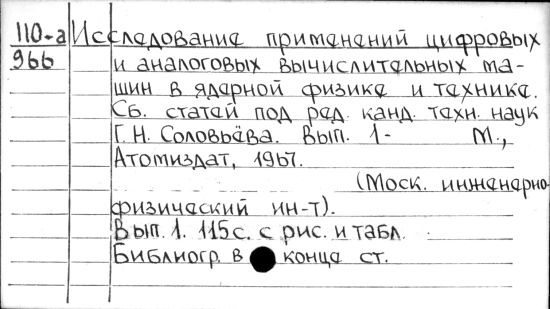 110-а Исследование применений цифровых
966 и аналоговых вычислительных ма-
шин в ядерной физике и технике.
Сб. статей под ред. канд. техн. наук
Г. Н. Соловьёва. Вып. 1- М.,
Атомиздат, 1967.
(Моск. инженерно-
физический ин-т).
Вып. 1. 115 с. с рис. и табл.
Библиогр. в конце ст.